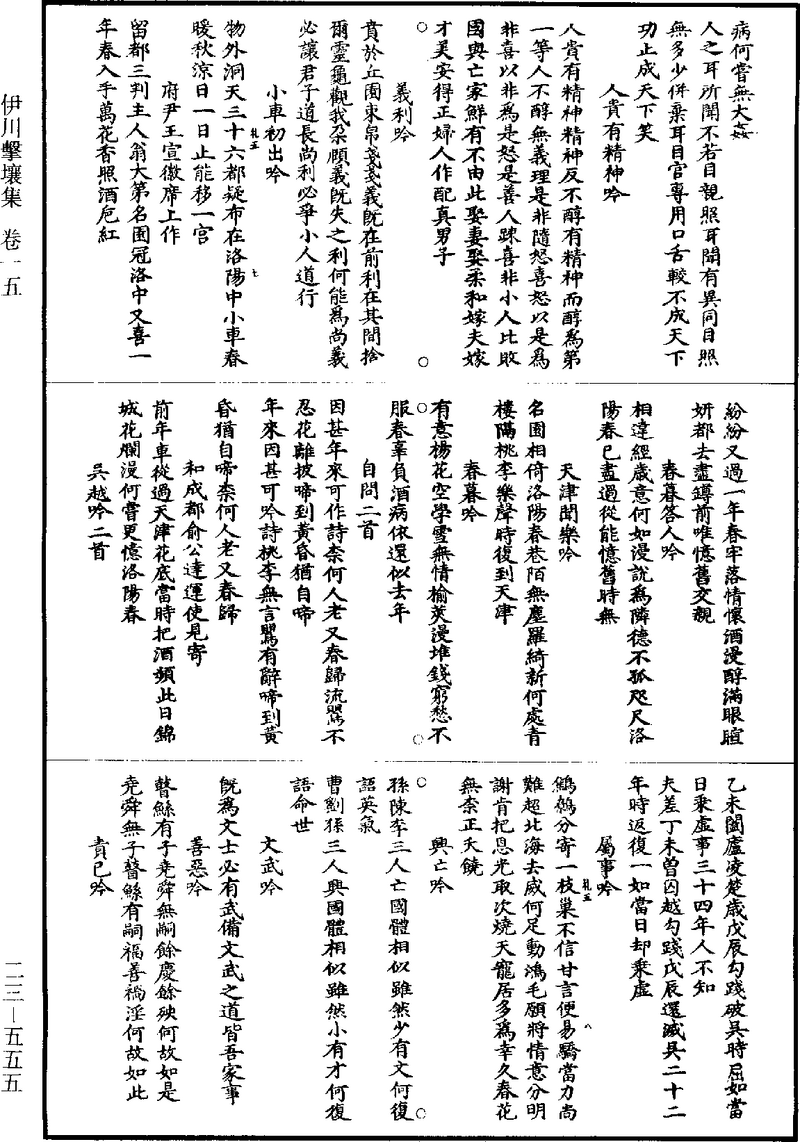 伊川擊壤集 卷一五
二三－五五五
病何嘗無大姦
人之耳所聞不若目親照耳聞有異同目照
無多少併棄耳目官專用口舌較不成天下
功止成天下笑
人貴有精神吟
人貴有精神精神反不醇有精神而醇為第
一等人不醇無義理是非隨怒喜怒以是為
非喜以非為是怒是善人踈喜非小人比敗
國與亡家鮮有不由此娶妻娶柔和嫁夫嫁
才美安得正婦人作配真男子
義利吟
賁於丘園束帛戔戔義旣在前利在其間捨
爾靈龜觀我朶頤義旣失之利何能為尚義
必讓君子道長尚利必爭小人道行
小車初出吟
物外洞天三十六都疑布在洛陽中小車春
暖秋涼日一日止能移一宮
府尹王宣徽席上作
留都三判主人翁大第名園冠洛中又喜一
年春入手萬花香照酒巵紅
紛紛又過一年春牢落情懷酒漫醇滿眼暄
妍都去盡罇前唯憶舊交親
春暮答人吟
相違經歲意何如漫說為隣德不孤咫尺洛
陽春已盡過從能憶舊時無
天津聞樂吟
名園相倚洛陽春巷陌無塵羅綺新何處青
樓隔桃李樂聲時復到天津
春暮吟
有意楊花空學雪無情榆莢漫堆錢窮愁不
服春辜負酒病依還似去年
自問二首
因甚年來可作詩柰何人老又春歸流鸎不
忍花離披啼到黃昏猶自啼
年來因甚可吟詩桃李無言鸎有辭啼到黃
昏猶自啼柰何人老又春歸
和成都俞公達運使見寄
前年車從過天津花底當時把酒頻此日錦
城花爛漫何嘗更憶洛陽春
吳越吟二首
乙未闔廬凌楚歲戊辰勾踐破吳時屈如當
日乘虛事三十四年人不知
夫差丁未曾囚越勾踐戊辰還滅吳二十二
年時返復一如當日却乘虛
屬事吟
鷦鷯分寄一枝巢不信甘言便易驕當力尚
難超北海去威何足動鴻毛願將情意分明
謝肯把恩光取次燒天寵居多為幸久春花
無柰正夭饒
興亡吟
孫陳李三人亡國體相似雖然少有文何復
語英氣
曹劉孫三人興國體相似雖然小有才何復
語命世
文武吟
旣為文士必有武備文武之道皆吾家事
善惡吟
瞽鯀有子堯舜無嗣餘慶餘殃何故如是
堯舜無子瞽鯀有嗣福善禍淫何故如此
責已吟